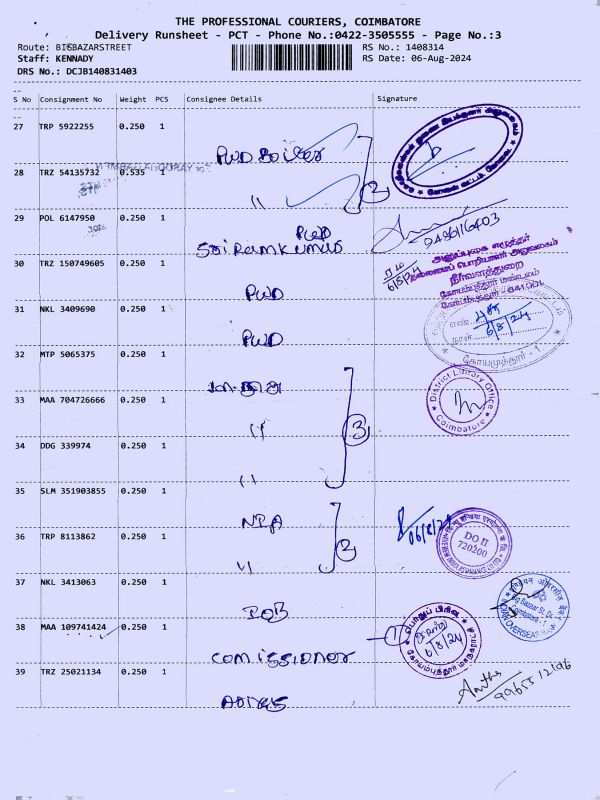 THE PROFESSIONAL COURIERS, COIMBATORE
Delivery Runsheet - PCT - Phone No.:0422-3505555 - Page No.:3
Route: BIGBAZARSTREET
RS No.: 1408314
Staff: KENNADY
RS Date: 06-Aug-2024
DRS No.: DCJB140831403
S No Consignment No Weight PCS Consignee Details Signature
27 TRP 5922255 0.250 1
PWD Boiler
28 TRZ 54135732 0.535 1
〃 2
29 POL 6147950 0.250 1
PWD
Sriramkumar
9486116403
30 TRZ 150749605 0.250 1
PWD
6/8/24
31 NKL 3409690 0.250 1
PWD
6/8/24
கோயமுத்தூர் - 1
32 MTP 5065375 0.250 1
33 MAA 704726666 0.250 1
〃 3
District Library Office
Coimbatore
34 DDG 339974 0.250 1
〃
35 SLM 351903855 0.250 1
NIA
06/8/24
36 TRP 8113862 0.250 1
〃 2
DO II
720200
37 NKL 3413063 0.250 1
IOB
Big Bazaar St. Br.
Coimbatore - 1
38 MAA 109741424 0.250 1
comissioner
1
பொதுப் பிரிவு
6/8/24
39 TRZ 25021134 0.250 1